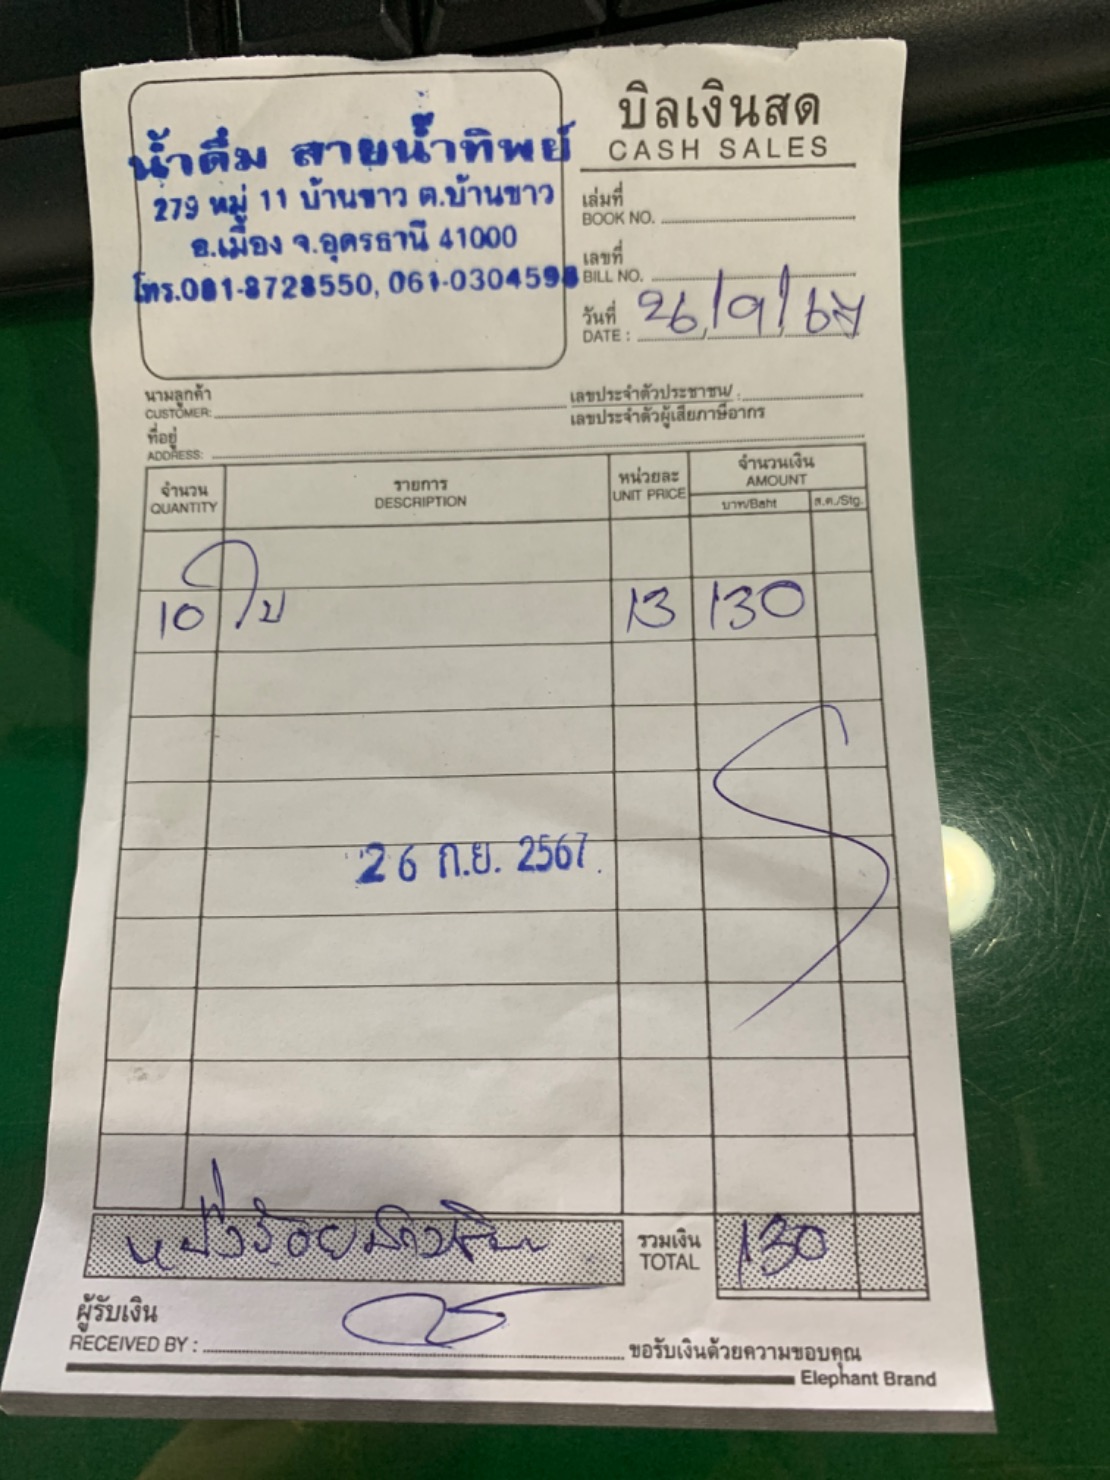 บิลเงินสด
CASH SALES
น้ำดื่ม สายน้ำทิพย์
279 หมู่ 11 บ้านขาว ต.บ้านขาว
อ.เมือง จ.อุดรธานี 41000
โทร.081-8728550, 061-0304598
เล่มที่
BOOK NO.
เลขที่
BILL NO.
วันที่
DATE : 26/9/67
นามลูกค้า
CUSTOMER:
เลขประจำตัวประชาชน/ :
เลขประจำตัวผู้เสียภาษีอากร
ที่อยู่
ADDRESS:
จำนวน
QUANTITY
รายการ
DESCRIPTION
หน่วยละ
UNIT PRICE
จำนวนเงิน
AMOUNT
บาท/Baht ส.ต./Stg.
10 ใบ 13 130
26 ก.ย. 2567
รวมเงิน
TOTAL
130
ผู้รับเงิน
RECEIVED BY :
ขอรับเงินด้วยความขอบคุณ
Elephant Brand